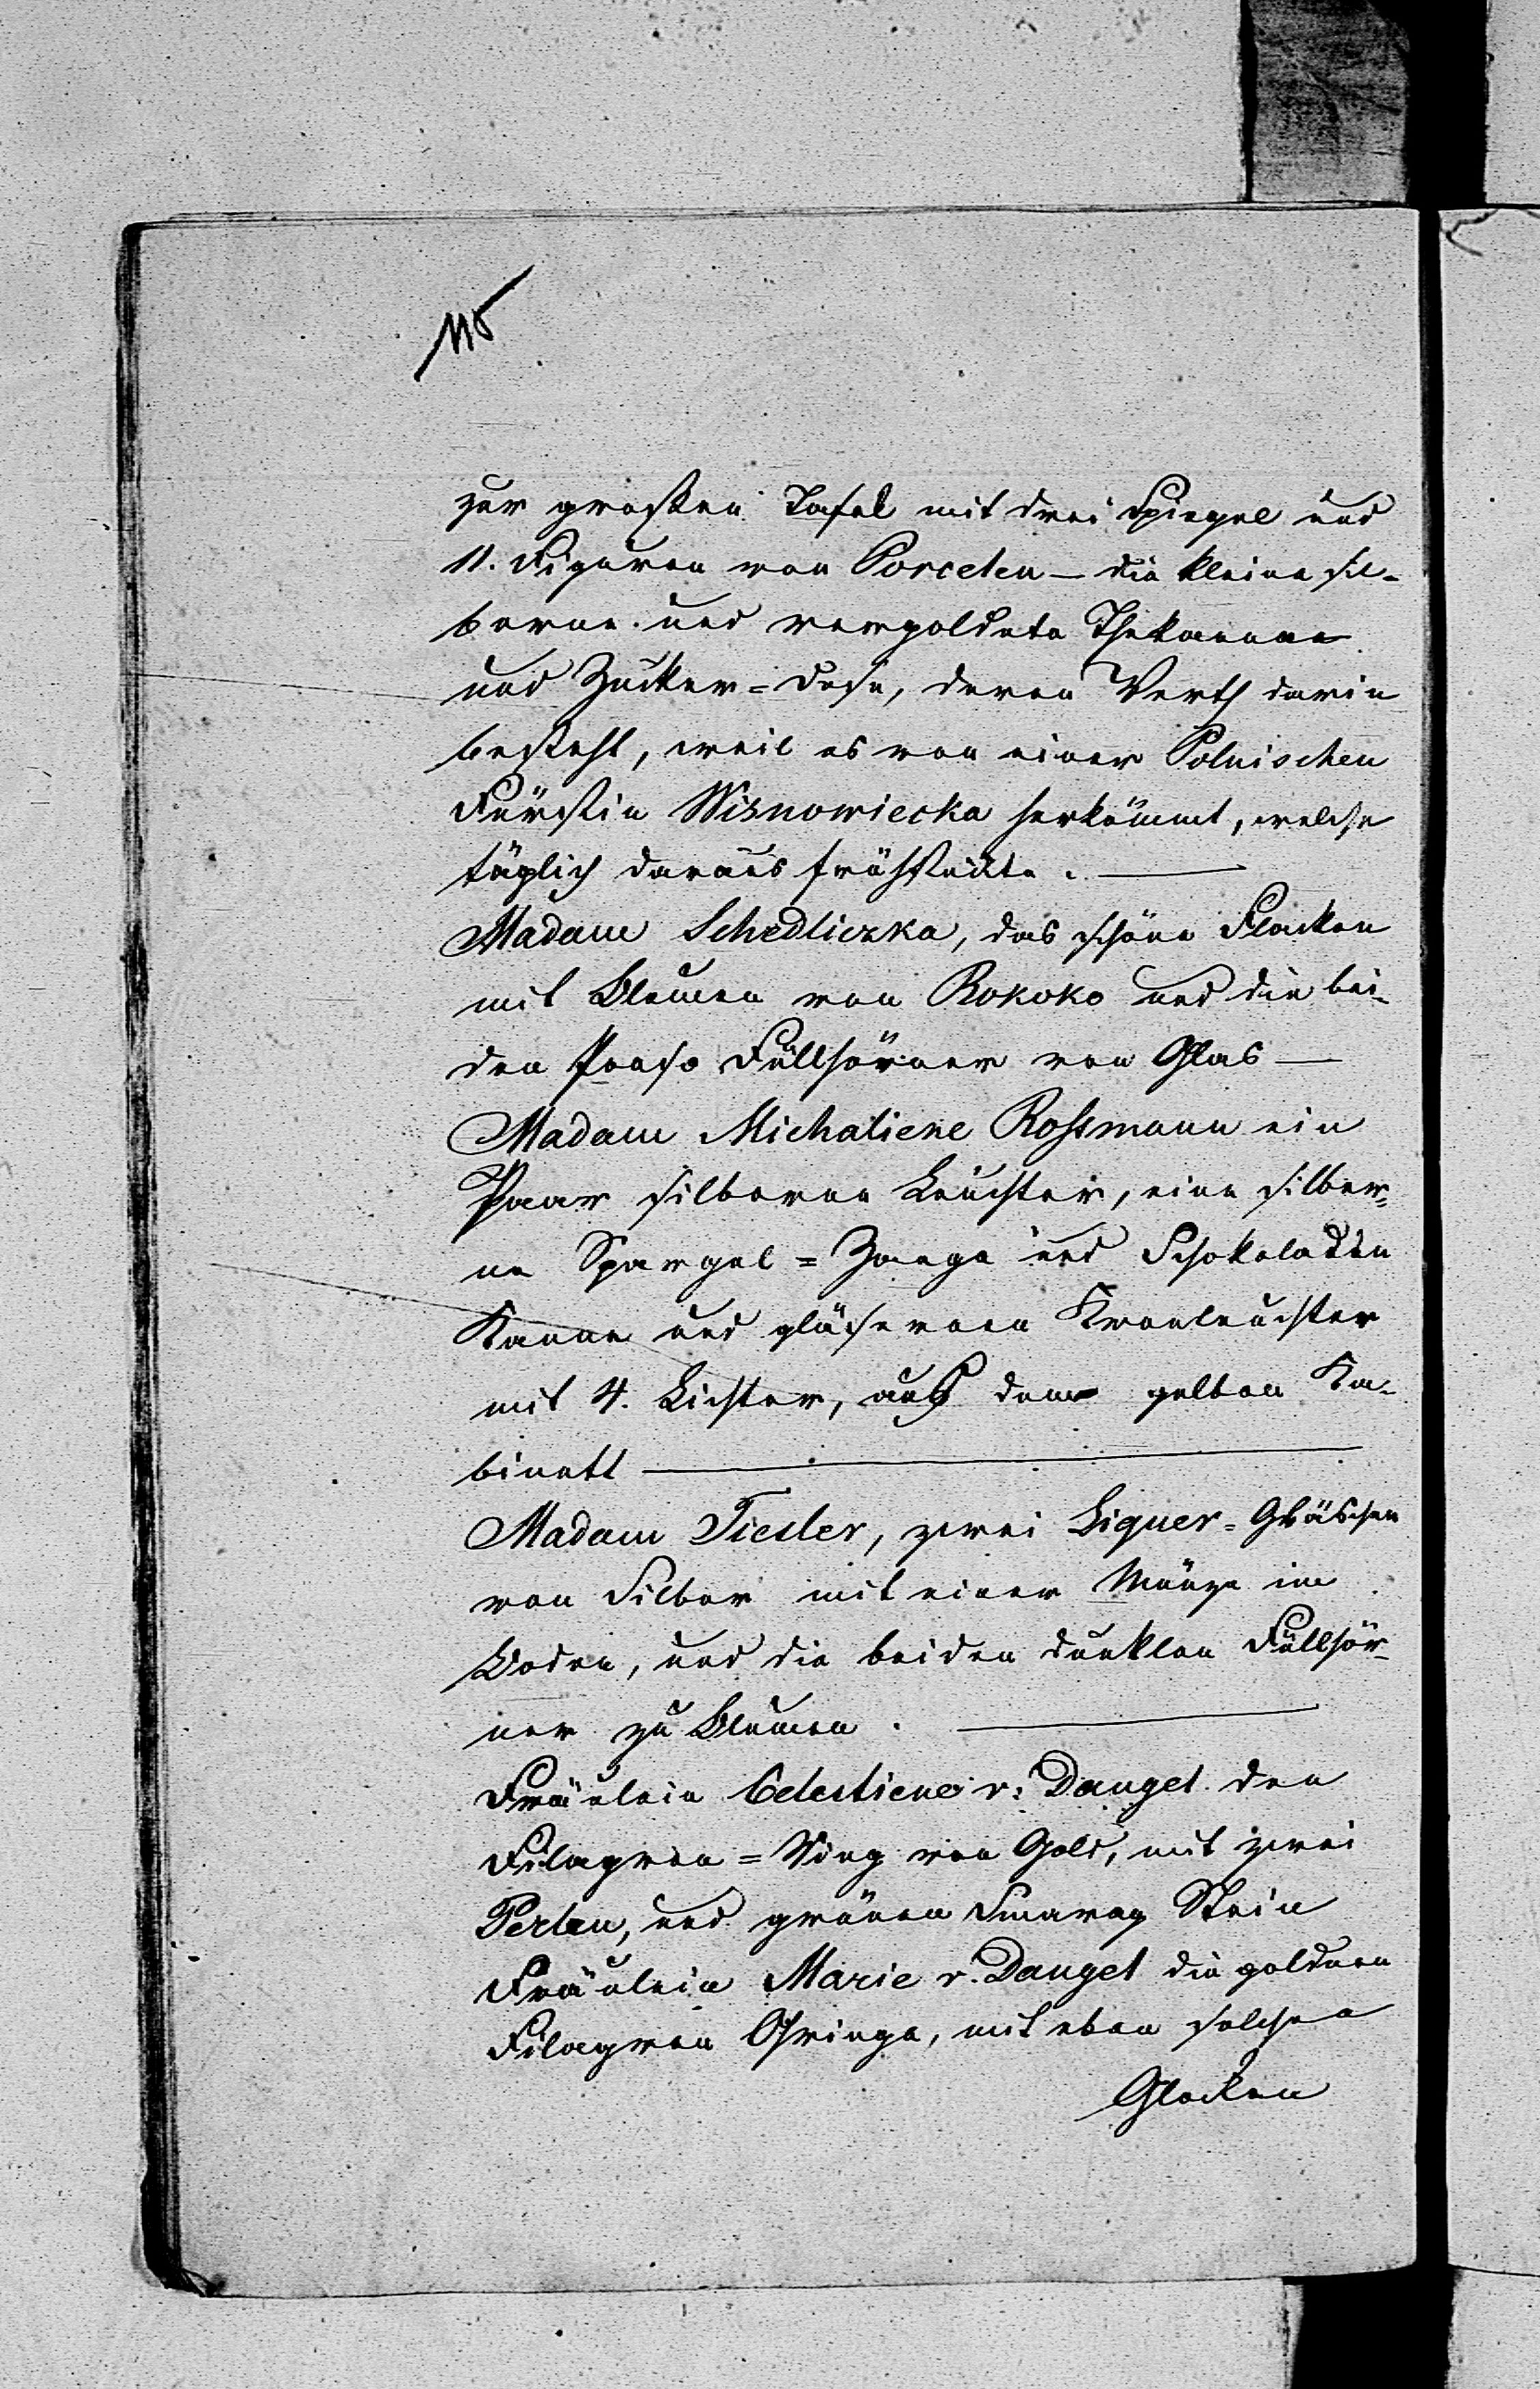 115
zur großen Tafel mit drei Spiegel und
11. Figuren von Porcelen — die kleine sil-
berne und vergoldete Thekanne
und Zucker=Dose, deren Werth darin
besteht, weil es von einer Polnischen
Fürstin Wisnowiecka herkömmt, welche
täglich daraus frühstückte. —
Madam Schedliczka, das schöne Flacken
mit Blumen von Rokoko und die bei-
den Füllhörner von Glas —
Madam Michaliene Roßmann ein
Paar silberne Leuchter, eine silber-
ne Spargel=Zange und Schokoladen
Kanne und gläsernen Kronleuchter
mit 4. Lichter, aus dem gelben Ka-
binett —
Madam Tiesler, zwei Liquer=Gläschen
von Silber mit einer Münze im
Boden, und die beiden dunklen Füllhör-
ner zu Blumen. —
Fräulein Celestiene v: Dangel den
Filagren=Ring von Gold, mit zwei
Perlen, und grünen Smarag Stein
Fräulein Marie v. Dangel die goldnen
Filagren Ohringe, mit eben solchen
Glocken